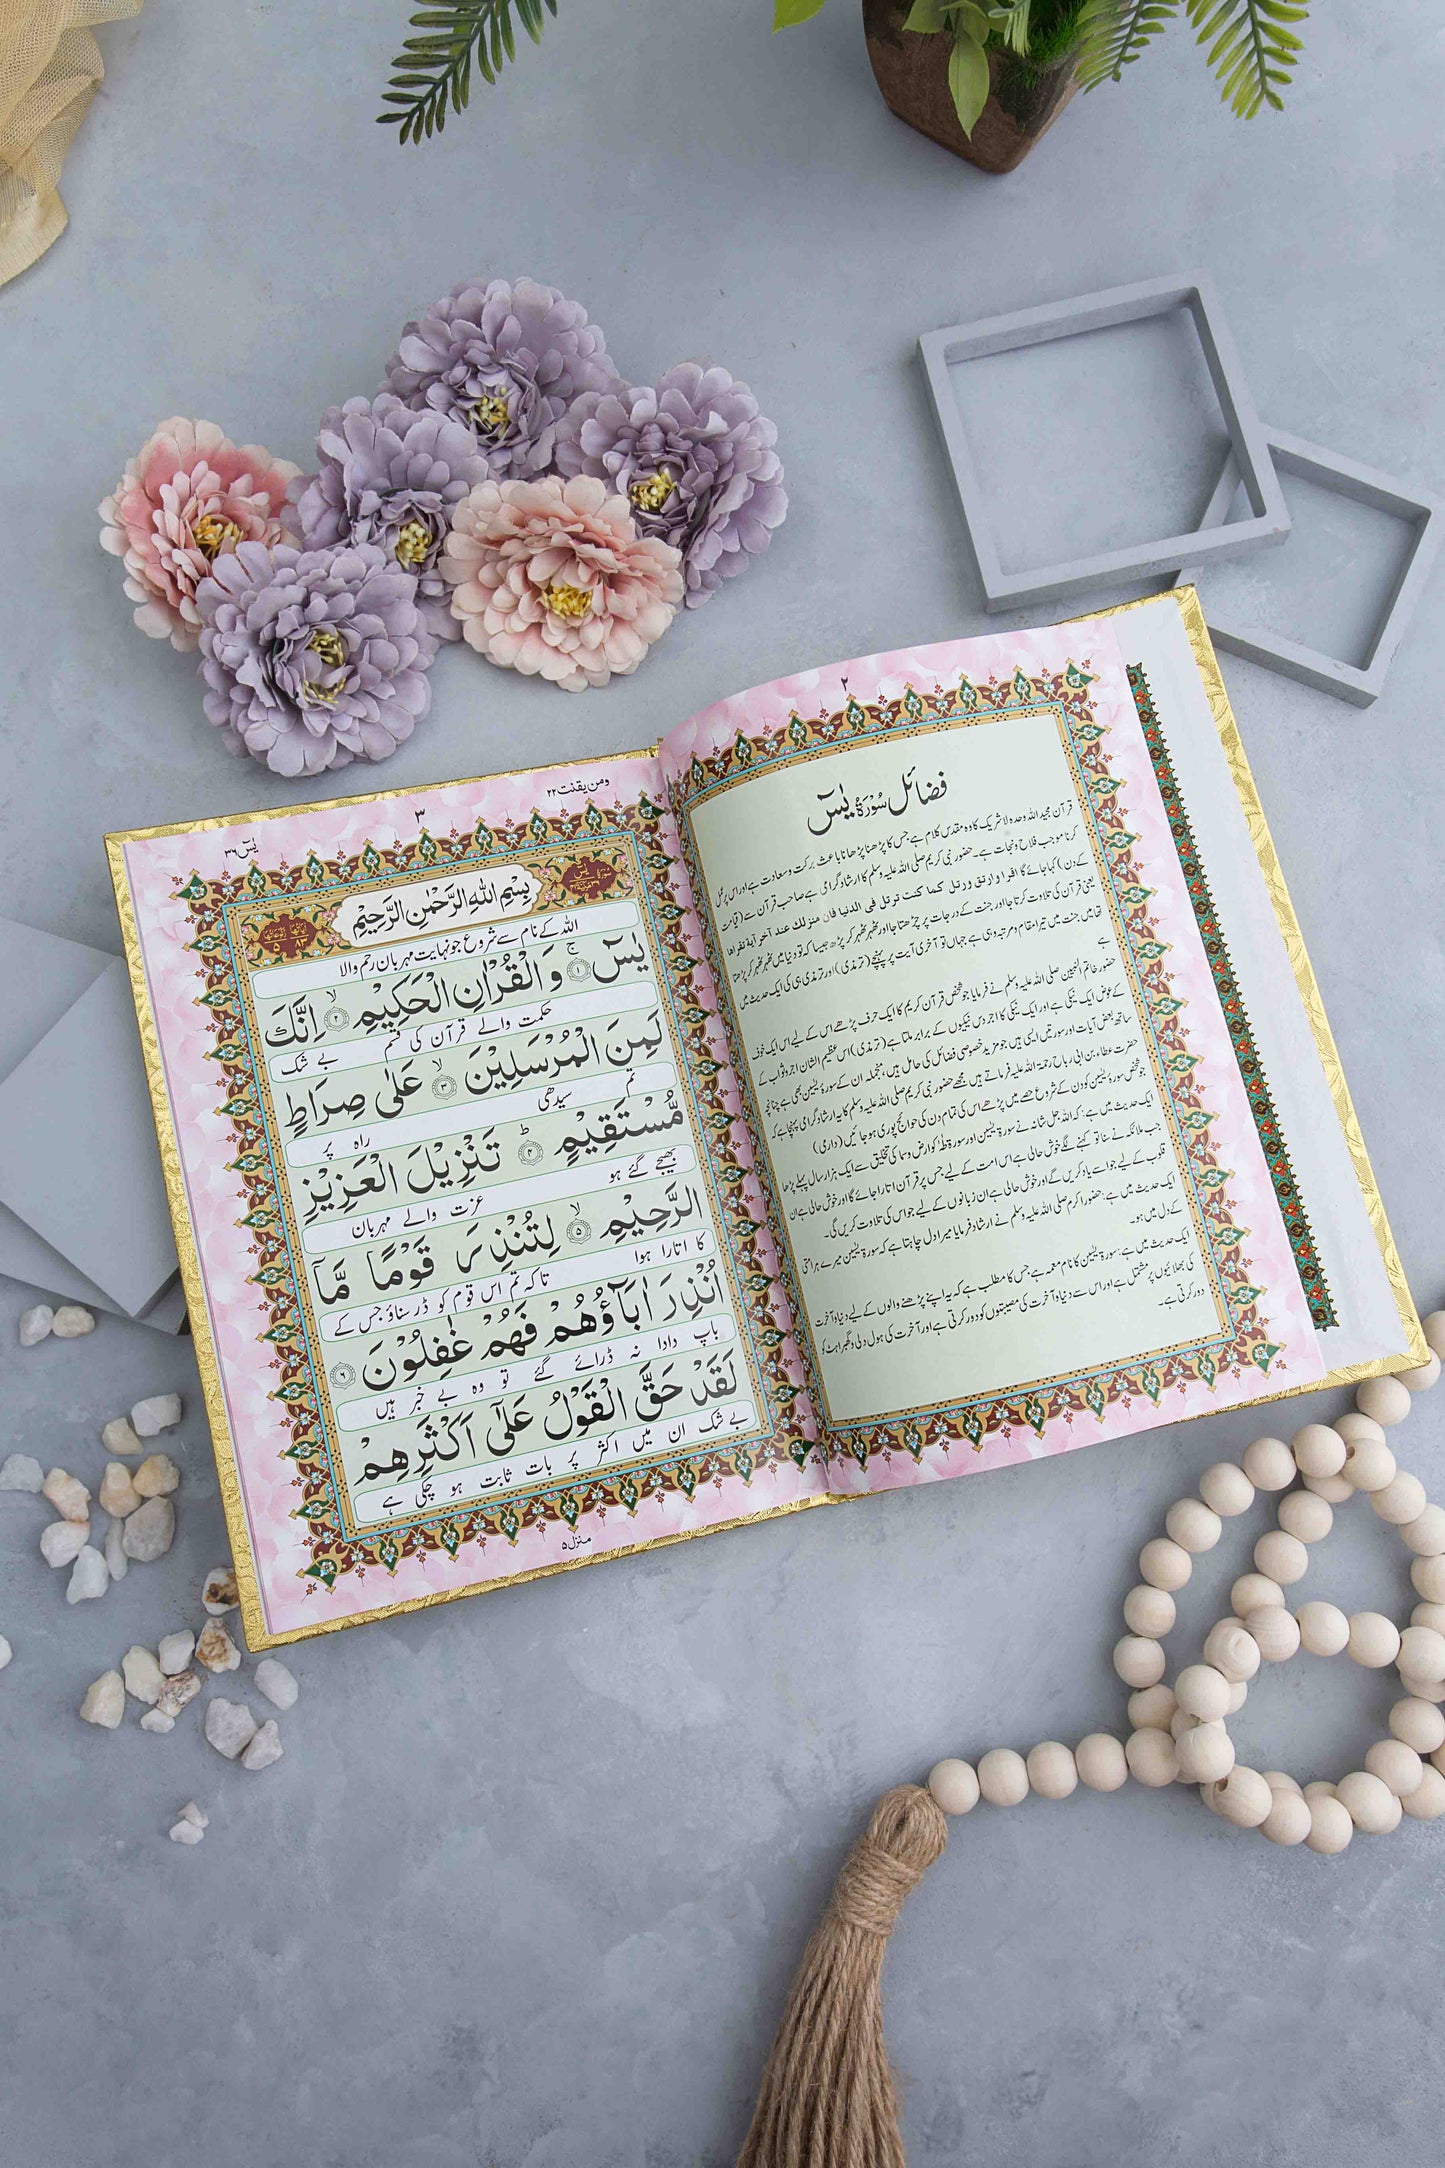 ۲
فضائل سُوْرَۃُ یٰسٓ
قرآن مجید اللہ وحدہ لاشریک کا وہ مقدس کلام ہے جس کا پڑھنا پڑھانا باعث برکت و سعادت ہے اور اس پر عمل
کرنا موجب فلاح و نجات ہے۔ حضور نبی کریم صلی اللہ علیہ وسلم کا ارشاد گرامی ہے صاحب قرآن سے (قیامت
کے دن) کہا جائے گا اقرا و ارتق ورتل کما کنت ترتل فی الدنیا فان منزلك عند آخر آیة تقراھا
یعنی قرآن کی تلاوت کرتا جا اور جنت کے درجات پر چڑھتا جا اور ٹھہر ٹھہر کر پڑھ جیسا کہ تو دنیا میں ٹھہر ٹھہر کر پڑھتا
تھا پس جنت میں تیرا مقام و مرتبہ وہی ہے جہاں تو آخری آیت پر پہنچے (ترمذی) اور ترمذی ہی کی ایک حدیث میں
ہے
حضور خاتم النبیین صلی اللہ علیہ وسلم نے فرمایا جو شخص قرآن کریم کا ایک حرف پڑھے اس کے لیے اس ایک حرف
کے عوض ایک نیکی ہے اور ایک نیکی کا اجر دس نیکیوں کے برابر ملتا ہے (ترمذی) اس عظیم الشان اجر و ثواب کے
ساتھ بعض آیات اور سورتیں ایسی ہیں جو مزید خصوصی فضائل کی حامل ہیں، منجملہ ان کے سورۃ یٰسین بھی ہے چنانچہ
حضرت عطاء بن ابی رباح رحمۃ اللہ علیہ فرماتے ہیں مجھے حضور نبی کریم صلی اللہ علیہ وسلم کا یہ ارشاد گرامی پہنچا ہے کہ
جو شخص سورۃ یٰسین کو دن کے شروع حصے میں پڑھے اس کی تمام دن کی حوائج پوری ہو جائیں (دارمی)
ایک حدیث میں ہے: کہ اللہ جل شانہ نے سورۃ یٰسین اور سورۃ طٰہٰ کو ارض و سما کی تخلیق سے ایک ہزار سال پہلے پڑھا
جب ملائکہ نے سنا تو کہنے لگے خوش حالی ہے اس امت کے لیے جس پر قرآن اتارا جائے گا اور خوش حالی ہے ان
قلوب کے لیے جو اسے یاد کریں گے اور خوش حالی ہے ان زبانوں کے لیے جو اس کی تلاوت کریں گی۔
ایک حدیث میں ہے: حضور اکرم صلی اللہ علیہ وسلم نے ارشاد فرمایا میرا دل چاہتا ہے کہ سورۃ یٰسین میرے ہر امتی
کے دل میں ہو۔
ایک حدیث میں ہے: سورۃ یٰسین کا نام معمہ ہے، جس کا مطلب ہے کہ یہ اپنے پڑھنے والوں کے لیے دنیا و آخرت
کی بھلائیوں پر مشتمل ہے اور اس سے دنیا و آخرت کی مصیبتوں کو دور کرتی ہے اور آخرت کی ہول دلی و گھبراہٹ کو
دور کرتی ہے۔
ومن یقنت ۲۲
۳
یٰسٓ ۳۶
بِسْمِ اللّٰهِ الرَّحْمٰنِ الرَّحِيْمِ
اللہ کے نام سے شروع جو نہایت مہربان رحم والا
يٰسٓ ۚ ۝۱ وَ الْقُرْاٰنِ الْحَكِيْمِ ۙ ۝۲ اِنَّكَ
حکمت والے قرآن کی قسم بے شک
لَمِنَ الْمُرْسَلِيْنَ ۙ ۝۳ عَلٰى صِرَاطٍ
تم سیدھی
مُّسْتَقِيْمٍ ؕ ۝۴ تَنْزِيْلَ الْعَزِيْزِ
راہ پر بھیجے گئے ہو عزت والے مہربان
الرَّحِيْمِ ۙ ۝۵ لِتُنْذِرَ قَوْمًا مَّآ
کا اتارا ہوا تاکہ تم اس قوم کو ڈر سناؤ جس کے
اُنْذِرَ اٰبَآؤُهُمْ فَهُمْ غٰفِلُوْنَ ۝۶
باپ دادا نہ ڈرائے گئے تو وہ بے خبر ہیں
لَقَدْ حَقَّ الْقَوْلُ عَلٰٓى اَكْثَرِهِمْ
بے شک ان میں اکثر پر بات ثابت ہو چکی ہے
منزل ۵